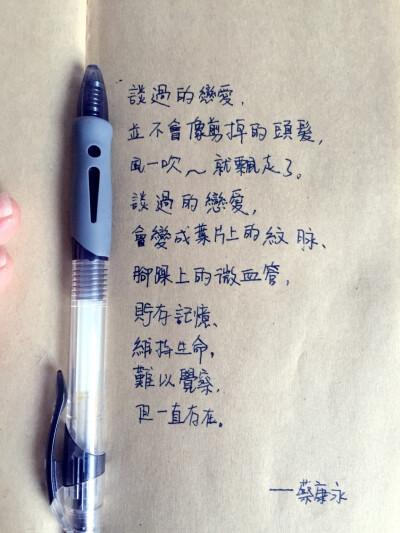 談過的戀愛，
並不會像剪掉的頭髮，
風一吹～就飄走了。
談過的戀愛，
會變成葉片上的紋脉、
腳踝上的微血管，
貯存記憶、
維持生命。
難以覺察，
但一直存在。
——蔡康永